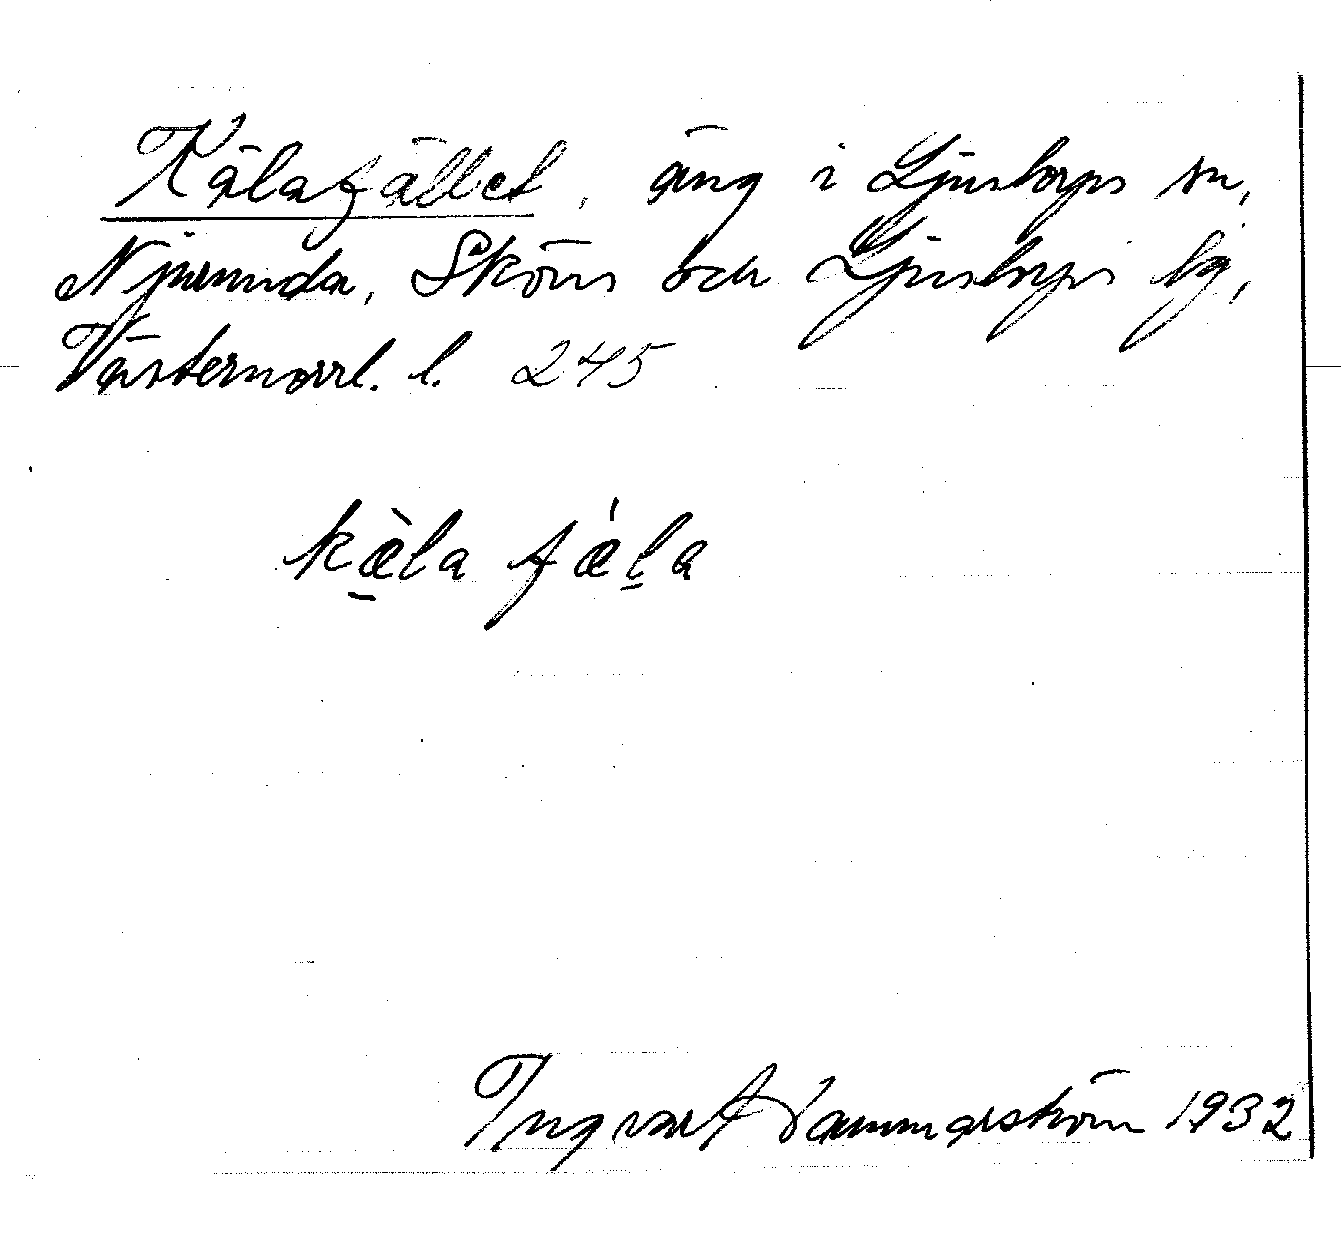 Kälafället, äng i Ljustorps sn,
Njurunda, Sköns och Ljustorps tg,
Västernorrl. l. 245
kæ̀la fǽla
Ingvar Hammarström 1932